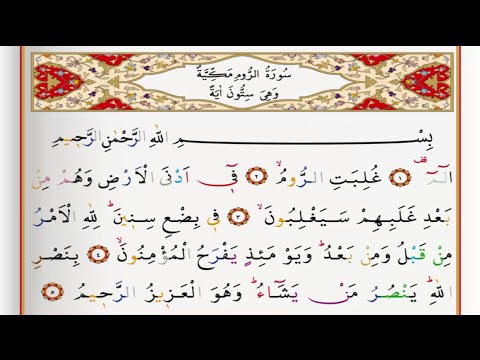 سُورَةُ الرُّومِ مَكِّيَّةٌ
وَهِيَ سِتُّونَ اٰيَةً
بِسْــــمِ اللهِ الرَّحْمٰنِ الرَّحٖيمِ
الٓمٓ ۚ ﴿١﴾ غُلِبَتِ الرُّومُۙ ﴿٢﴾ فٖٓى اَدْنَى الْاَرْضِ وَهُمْ مِنْ
بَعْدِ غَلَبِهِمْ سَيَغْلِبُونَۙ ﴿٣﴾ فٖى بِضْعِ سِنٖينَؕ لِلّٰهِ الْاَمْرُ
مِنْ قَبْلُ وَمِنْ بَعْدُؕ وَيَوْمَئِذٍ يَفْرَحُ الْمُؤْمِنُونَۙ ﴿٤﴾ بِنَصْرِ
اللهِؕ يَنْصُرُ مَنْ يَشَٓاءُؕ وَهُوَ الْعَزٖيزُ الرَّحٖيمُۙ ﴿٥﴾